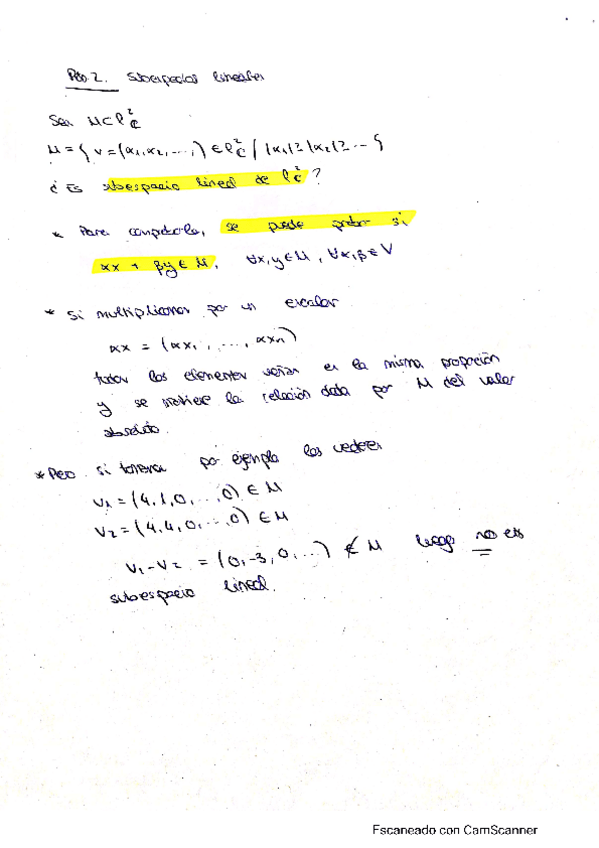 Pbo 2. Subespacios lineales
Sea M⊂ℓ²_ℂ
M = { v=(α₁,α₂,...,) ∈ ℓ²_ℂ / |α₁|≥|α₂|≥... }
¿ Es subespacio lineal de ℓ²_ℂ ?
* Para comprobarlo, se puede probar si
αx + βy ∈ M, ∀x,y∈M, ∀α,β∈V
* Si multiplicamos por un escalar
αx = (αx₁, ..., αxₙ)
todos los elementos varían en la misma proporción
y se mantiene la relación dada por M del valor
absoluto.
* Pero si tomamos por ejemplo los vectores
v₁ = (4,1,0,...,0) ∈ M
v₂ = (4,4,0,...,0) ∈ M
v₁-v₂ = (0,-3,0,...) ∉ M luego no es
subespacio lineal.
Escaneado con CamScanner